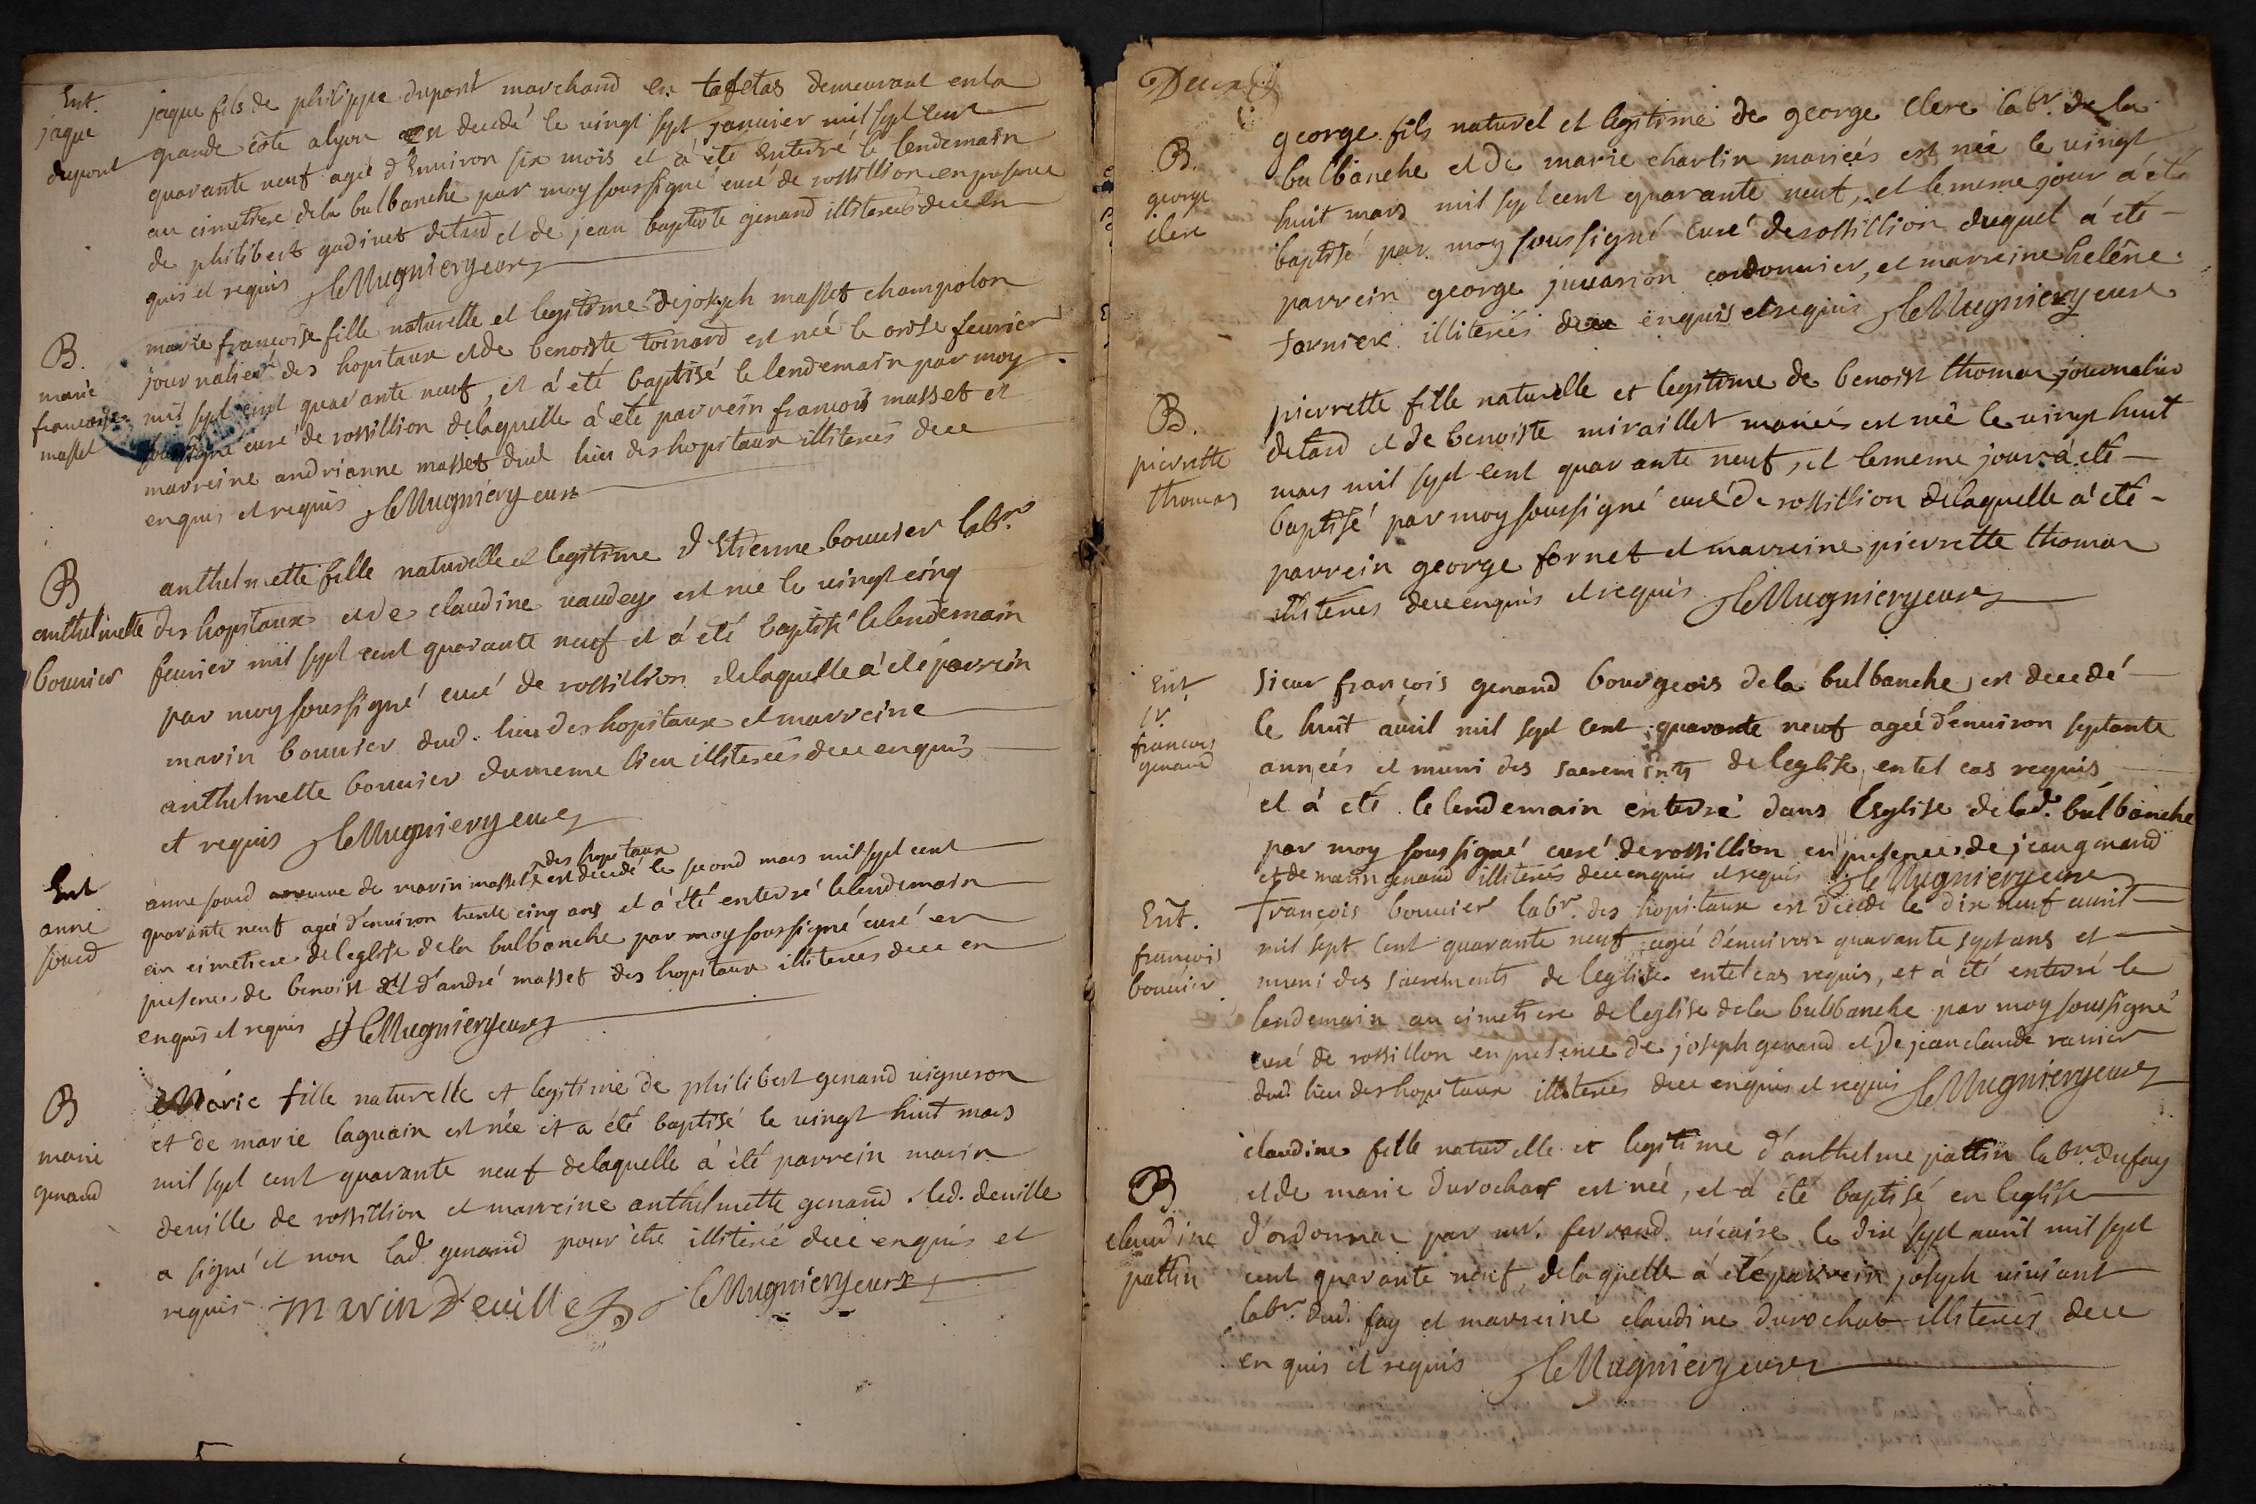 Ent.
jaque
dupont
jaque fils de philippe dupont marchand en tafetas demeurant en la
grande côte a lyon est decedé le vingt sept janvier mil sept cent
quarante neuf ageé d'Environ six mois et á eté Enterré le lendemain
au cimetiere de la bulbanche par moy soussigné curé de rossillion en presence
de philibert gadinet detard et de jean baptiste genand illitereés de ce en
quis et requis J leMugniery curé
B.
marie
francoise
masset
marie francoise fille naturelle et legitime de joseph masset champolon
journalier des hopitaux et de benoite toinard est neé le onse feurier
mil sept cent quarante neuf, et á eté baptisé le lendemain par moy
soussigné curé de rossillion de laquelle á eté parrein francois masset et
marreine andrianne masset dud lieu des hopitaux illitereés de ce
enquis et requis J leMugniery curé
B
anthelmette
bouuier
anthelmette fille naturelle et legitime d'Etienne bouuier labr.
des hopitaux et de claudine vaudey est neé le vingt cinq
feurier mil sept cent quarante neuf et á eté baptisé le lendemain
par moy soussigné curé de rossillion de laquelle á eté parrein
marin bouuier dud. lieu des hopitaux et marreine
anthelmette bouuier du meme lieu illitereés de ce enquis
et requis J leMugniery curé
Ent
anne
soud
des hopitaux
anne soud veuve de marin masset est decedé le second mars mil sept cent
quarante neuf ageé d'environ trente cinq ans et á eté enterré le lendemain
au cimetiere de l'eglise de la bulbanche par moy soussigné curé en
presence de benoist et d'andré masset des hopitaux illitereés de ce en
enquis et requis J leMugniery curé
B
marie
genand
Marie fille naturelle et legitime de philibert genand uigneron
et de marie laguain est née et a été baptisé le vingt huit mars
mil sept cent quarante neuf de laquelle á été parrein marin
deuille de rossillion et marreine anthelmette genand. led. deuille
a signé et non lad. genand pour etre illiteré de ce enquis et
requis marin Deuille J leMugniery curé
Deux
B.
george
clerc
george fils naturel et legitime de george clerc labr. de la
bulbanche et de marie charlin marieés est neé le vingt
huit mars mil sept cent quarante neuf, et le meme jour á eté
baptisé par moy soussigné curé de rossillion duquel á eté
parrein george juuanon cordonnier, et marreine heléne
fornier illitereés de ce enquis et requis J leMugniery curé
B.
pierrette
thomas
pierrette fille naturelle et legitime de benoist thomas journalier
detard et de benoiste miraillet marieés est neé le vingt huit
mars mil sept cent quarante neuf, et le meme jour á eté
baptisé par moy soussigné curé de rossillion de laquelle á eté
parrein george fornet et marreine pierrette thomas
illitereés de ce enquis et requis J leMugniery curé
Ent
sr.
francois
genand
sieur françois genand bourgeois de la bulbanche est decedé
le huit auril mil sept cent quarante neuf ageé d'enuiron septante
anneés et muni des sacrements de l'eglise en tel cas requis
et á eté le lendemain enterré dans l'Eglise de lad. bulbanche
par moy soussigné curé de rossillion en presence de jean genand
et de marin genand illitereés de ce enquis et requis J leMugniery curé
Ent.
françois
bouuier
françois bouuier labr. des hopitaux est decedé le dix neuf auril
mil sept cent quarante neuf ageé d'enuiron quarante sept ans et
muni des sacrements de l'eglise en tel cas requis, et á été enterré le
lendemain au cimetiere de l'eglise de la bulbanche par moy soussigné
curé de rossillon en presence de joseph genand et De jean claude ravier
dud lieu des hopitaux illitereés de ce enquis et requis J leMugniery curé
B.
claudine
pattin
claudine fille naturelle et legitime d'anthelme pattin labr. du fay
et de marie durochat est neé, et á été baptisé en l'eglise
d'ordonnax par mr. ferrand vicaire le dix sept auril mil sept
cent quarante neuf, de laquelle á eté parrein joseph uiuiant
labr. dud. fay et marreine claudine durochat illitereés de ce
en quis et requis J leMugniery curé